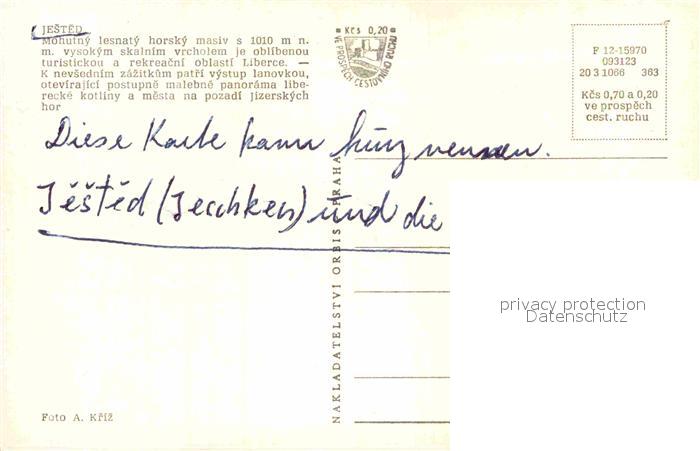 JEŠTĚD
Mohutný lesnatý horský masiv s 1010 m n.
m. vysokým skalním vrcholem je oblíbenou
turistickou a rekreační oblastí Liberce. —
K nevšedním zážitkům patří výstup lanovkou,
otevírající postupně malebné panoráma libe-
recké kotliny a města na pozadí Jizerských
hor
Kčs 0,20
VE PROSPĚCH CESTOVNÍHO RUCHU
F 12-15970
093123
20 3 1066 363
Kčs 0,70 a 0,20
ve prospěch
cest. ruchu
Diese Karte kann
Ještěd (Jeschken) und die
NAKLADATELSTVÍ ORBIS PRAHA
privacy protection
Datenschutz
Foto A. Kříž